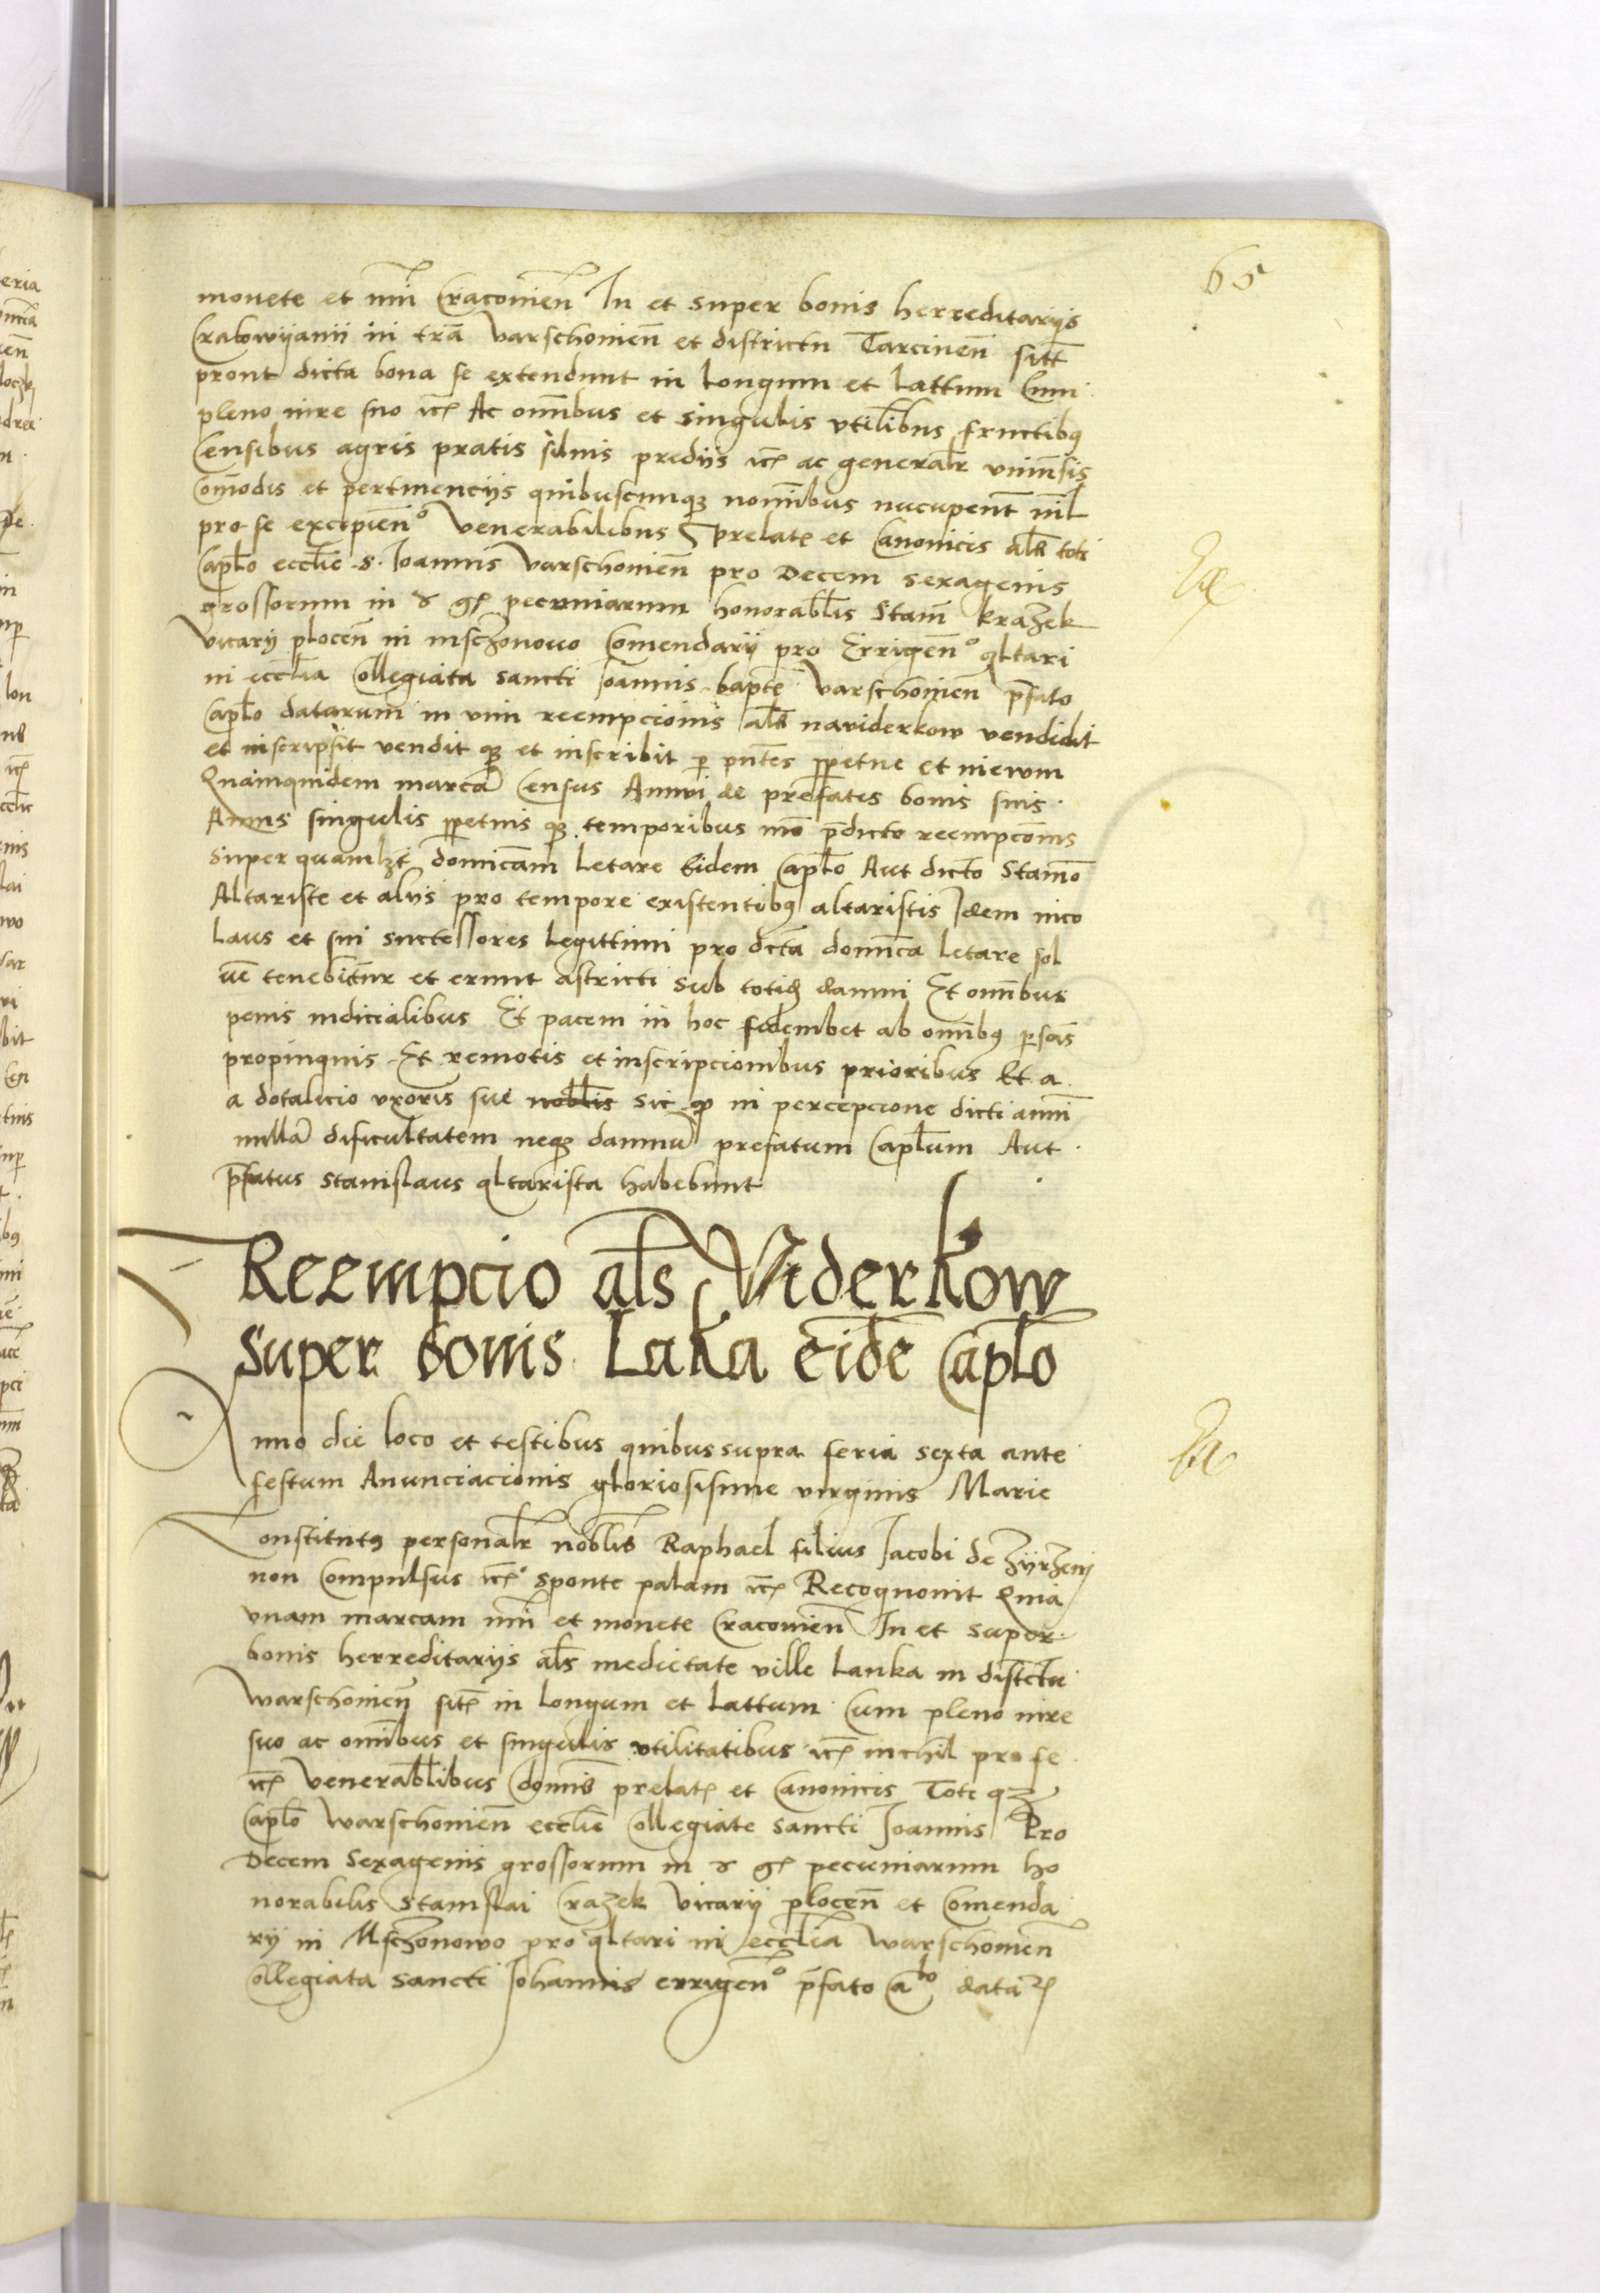 65
monete et nũi Craconieñ In et super bonis herreditarijs
Crakowijanii in trā Varschonieñ et districtu Tarcineñ sitt̃
prout dicta bona se extendunt in Longum et Lattum Cum
pleno iure suo itc̃ Ac om̃ibus et singulis vtilib̃us fructibꝰ
Censibus agris pratis siluis predijs itc̃ ac general̃r vniuẽsis
Com̃odis et pertinencijs quibuscunqꝫ nomi̅bus nucupent̃ nil̃
pro se excipieñ° Venerabilibus prelat̃ et Canonicis al̃s toti
Capl̃o eccl̃ie s. Ioannis Varschonieñ pro Decem sexagenis
grossorum in gͬ pecuniarum honorabl̃is Stani̅ krazek
Vicarij ploceñ in mschonowo Comendarij pro Errigeñ° altari
in eccl̃ia Collegiata sancti Joannis bapte̅ Varschonieñ p̅fato
Capl̃o datarum in vim reempcionis al̃s naviderkow vendidit
et inscripsit vendit qꝫ et inscribit p̱ pñtes p̱petue et in ewm
Quamquidem marcā Census Annui de prefatis bonis suis
Annis singulis p̱petuis qꝫ temporibus mõ p̅dicto reempcõnis
super quaml̃zt domi̅cam Letare Eidem Capl̃o Aut dicto Stani̅o
Altariste et alijs pro tempore existentibꝰ altaristis Idem nico
Laus et sui successores Legittimi pro dcta domi̅ca Letare sol
ue̅ tenebitur et erunt astricti sub totiꝗ damni Et om̃ibus
penis iudicialibus Et pacem in hoc fidembet ab om̃ibꝰ p̱sõis
propinquis Et remotis et inscripcionibus prioribus Et a
a dotalicio vxoris sue nobl̃is sic qp in percepcione dicti anni̅
nullā dificultatem neqꝫ damnū prefatum Capl̃um Aut
p̅fatus Stanislaus altarista habebunt
Reempcio al̃s Viderkow
super bonis Laka eide̅ Capl̃o
Anno die loco et testibus quibus supra feria sexta ante
festum Anunciacionis gloriosisime virginis Marie
Constitutꝰ personal̃r nobl̃is Raphael filius Jacobi de Zijrzenij
non Compulsus itc̃ sponte palam itc̃ Recognouit Quia
vnam marcam nũi et monete Craconieñ In et super
bonis herreditarijs al̃s medietate ville Lanka in distctu
Warschonieñ sitt̃ in Longum et Lattum Cum pleno iure
suo ac om̃ibus et singulis vtilitatibus itc̃ inchil pro se
itc̃ Venerabl̃ibus domi̅s prelat̃ et Canonicis Toti qꝫ
Capl̃o Warschonieñ eccl̃ie Collegiate sancti Joannis Pro
Decem Sexagenis grossorum in gͬ pecuniarum ho
norabilis Stanislai Crazek Vicarij ploceñ et Comenda
rij in Mschonowo pro altari in eccl̃ia Warschonieñ
Collegiata sancti Johannis errigeñ° p̅fato Caᵖˡᵒ dataꝝ